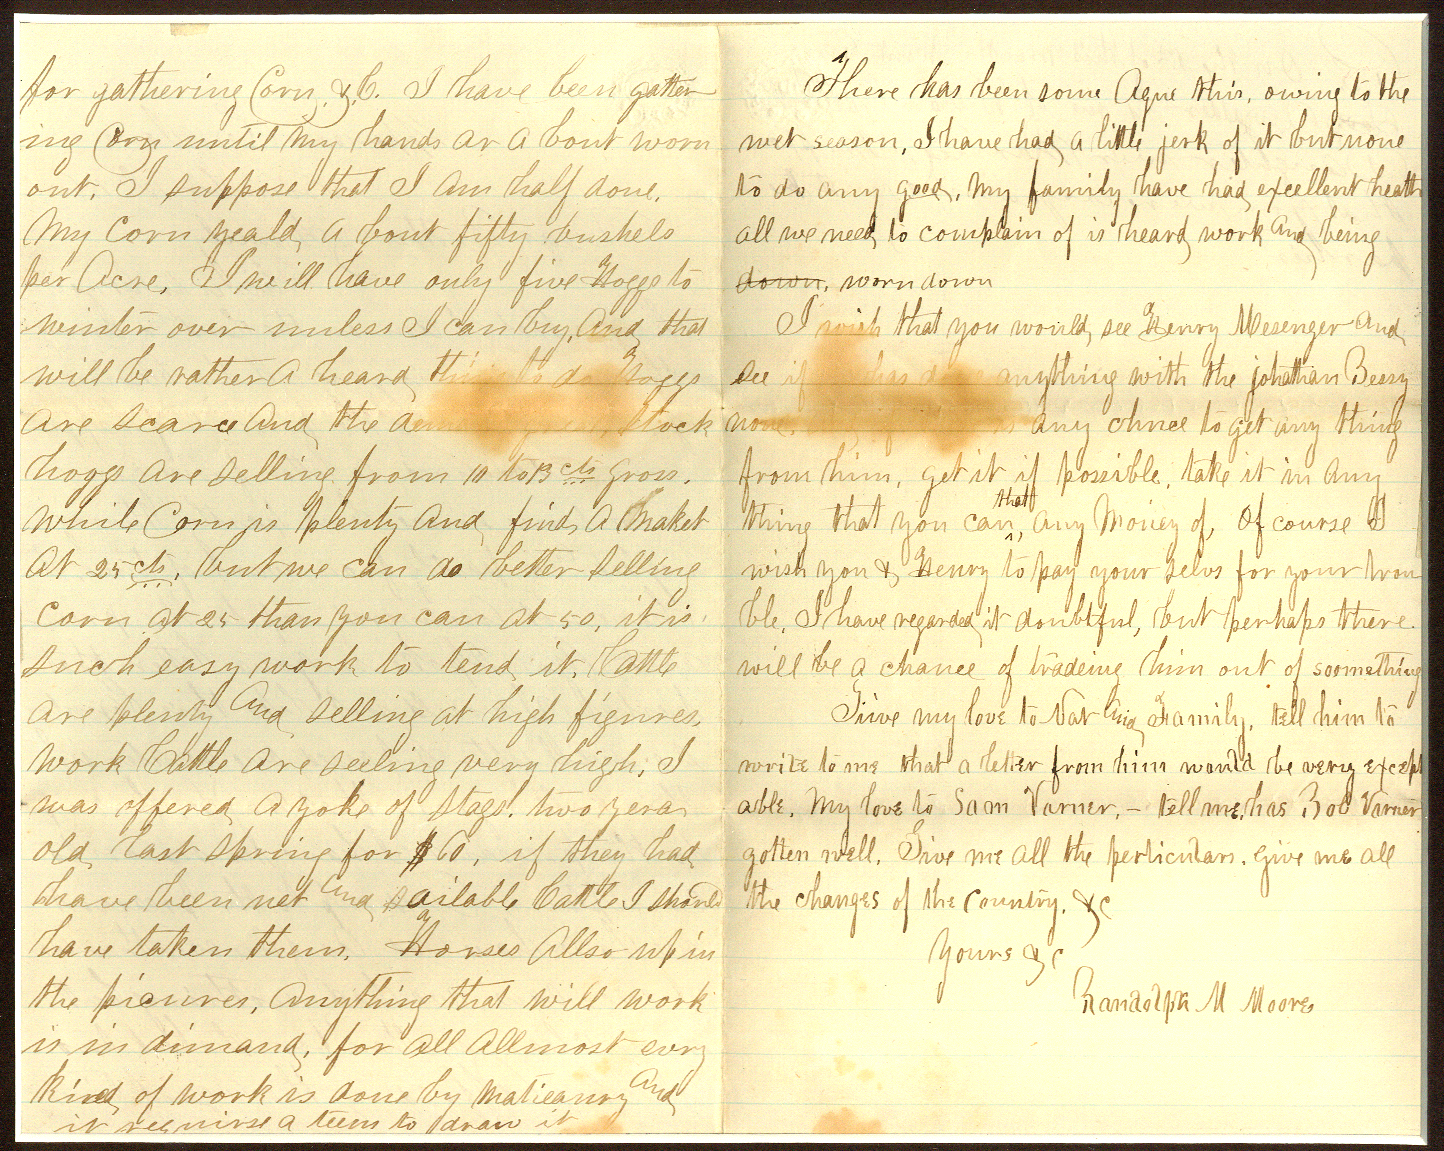 for gathering Corn, &,C. I have been gather
ing Corn until my hands ar a bout worn
out. I suppose that I am half done.
My Corn yeald, a bout fifty bushels
per Acre, I will have only five Hoggs to
winter over unless I can buy, And, that
will be rather a heard, thing to do Hoggs
are scarce And, the demand great, Stock
hoggs are selling from 11 to 13 cts gross.
while Corn is plenty and, finds a maket
at 25 cts, but we can do better selling
Corn at 25 than you can at 50, it is
such easy work to tend it. Cattle
are plenty And, selling at high figures,
work Cattle are seeling very high, I
was offered, a yoke of Stags, two year
old, last spring for $60, if they had
have been net And, sailable Cattle I should
have taken them. Horses allso up in
the picures, anything that will work
is in dimand, for all allmost evry
kind, of work is done by matieanry And,
it requirse a teem to draw it
There has been some Ague this, owing to the
wet season, I have had, a little jerk of it but none
to do any good, my family have had, excellent health
all we need, to complain of is heard, work And, being
down, worn down
I wish that you would, see Henry Mesenger And,
see if has done anything with the johathan Beery
note, is any chnce to get any thing
from him, get it if possible, take it in any
thing that you can, that any Money of, Of course I
wish you & Henry to pay your selvs for your trou
ble, I have regarded, it doubtful, but perhaps there
will be a chance of tradeing him out of soomething
Giive my love to Nat And, Family, tell him to
write to me that a letter from him would be very except
able, My love to Sam Varner, - tell me, has Bob Varner
gotten well, Give me all the perticulars, give me all
the changes of the Country, &c
Yours &c
Randolph M Moore